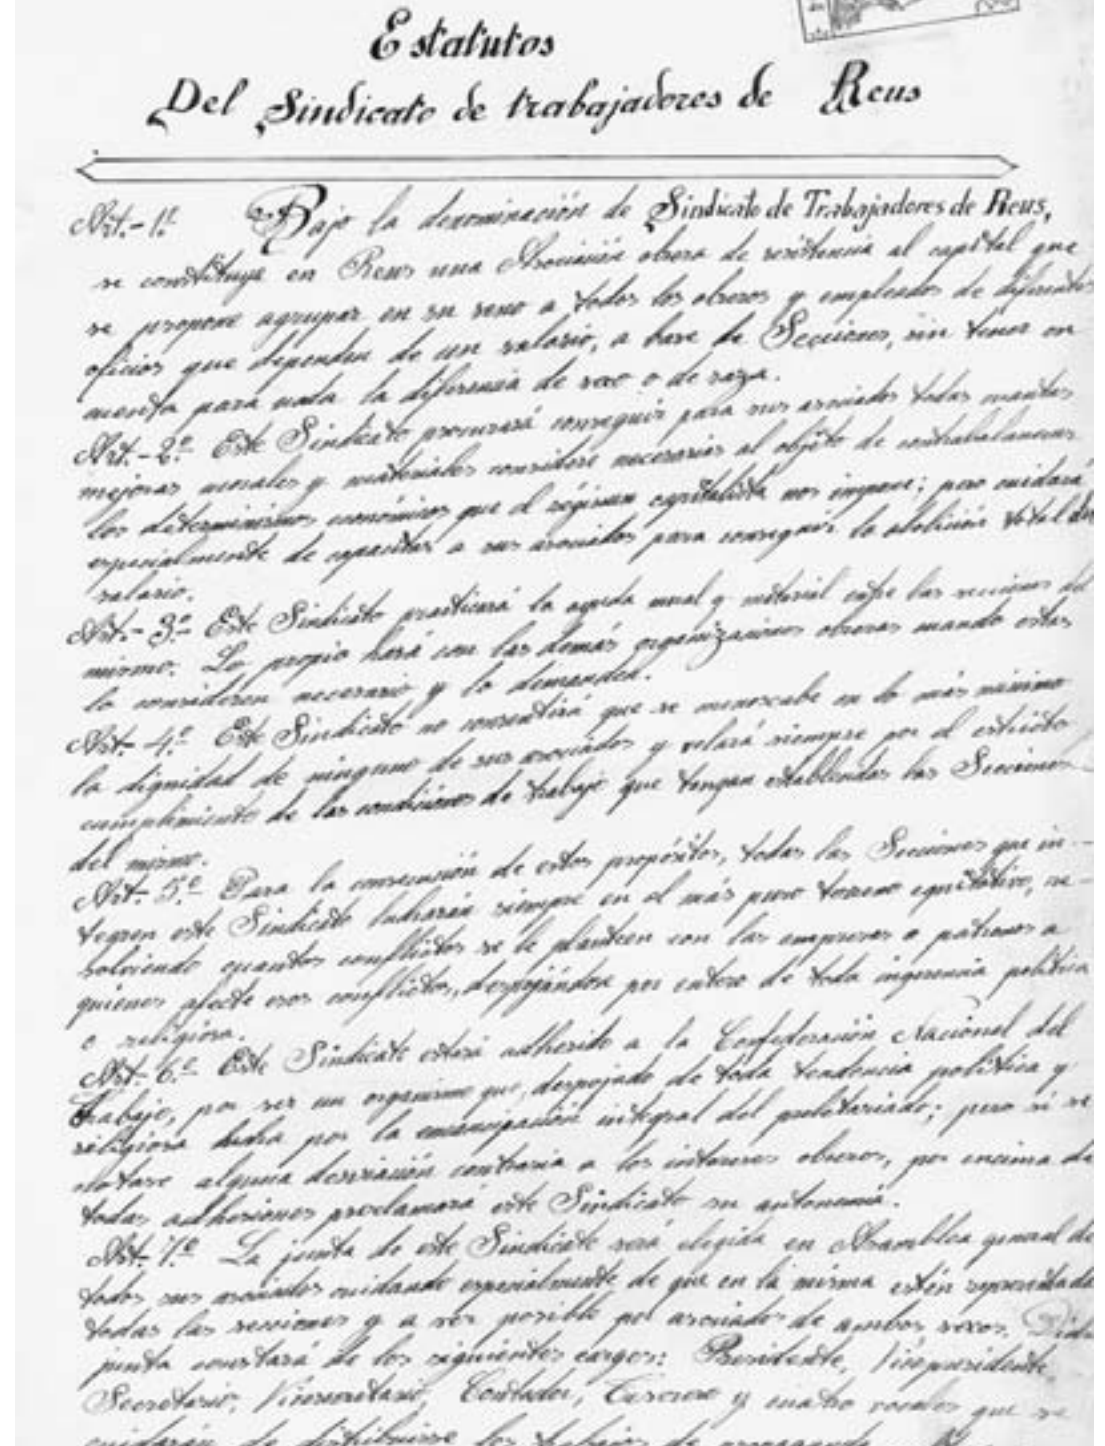 Estatutos
Del Sindicato de trabajadores de Reus
Art.-1º Bajo la denominación de Sindicato de Trabajadores de Reus,
se constituye en Reus una Asociación obrera de resistencia al capital que
se propone agrupar en su seno a todos los obreros y empleados de diferentes
oficios que dependen de un salario, a base de Secciones, sin tener en
cuenta para nada la diferencia de sexo o de raza.
Art.-2º Este Sindicato procurará conseguir para sus asociados todas cuantas
mejoras morales y materiales considere necesarias al objeto de contrabalancear
los determinismos económicos que el régimen capitalista nos impone; pero cuidará
especialmente de capacitar a sus asociados para conseguir la abolición total del
salario.
Art.-3º Este Sindicato practicará la ayuda moral y material entre las secciones del
mismo. Lo propio hará con las demás organizaciones obreras cuando estas
lo consideren necesario y lo demanden.
Art.-4º Este Sindicato no consentirá que se menoscabe en lo más mínimo
la dignidad de ninguno de sus asociados y velará siempre por el estricto
cumplimiento de las condiciones de trabajo que tengan establecidas las Secciones
del mismo.
Art.-5º Para la consecución de estos propósitos, todas las Secciones que in-
tegren este Sindicato lucharán siempre en el más puro terreno equitativo, re-
solviendo cuantos conflictos se le planteen con las empresas o patronos a
quienes afecte esos conflictos, despojándose por entero de toda ingerencia política
o religiosa.
Art.-6º Este Sindicato estará adherido a la Confederación Nacional del
Trabajo, por ser un organismo que, despojado de toda tendencia política y
religiosa lucha por la emancipación integral del proletariado; pero si se
notase alguna desviación contraria a los intereses obreros, por encima de
todas adhesiones proclamará este Sindicato su autonomía.
Art.-7º La junta de este Sindicato será elegida en Asamblea general de
todos sus asociados cuidando especialmente de que en la misma estén representada
todas las secciones y a ser posible por asociados de ambos sexos. Dicha
junta constará de los siguientes cargos: Presidente, Vicepresidente,
Secretario, Vicesecretario, Contador, Tesorero y cuatro vocales que se
cuidarán de distribuirse los trabajos de propaganda